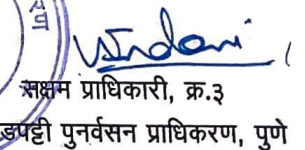 सक्षम प्राधिकारी, क्र.३
डपट्टी पुनर्वसन प्राधिकरण, पुणे